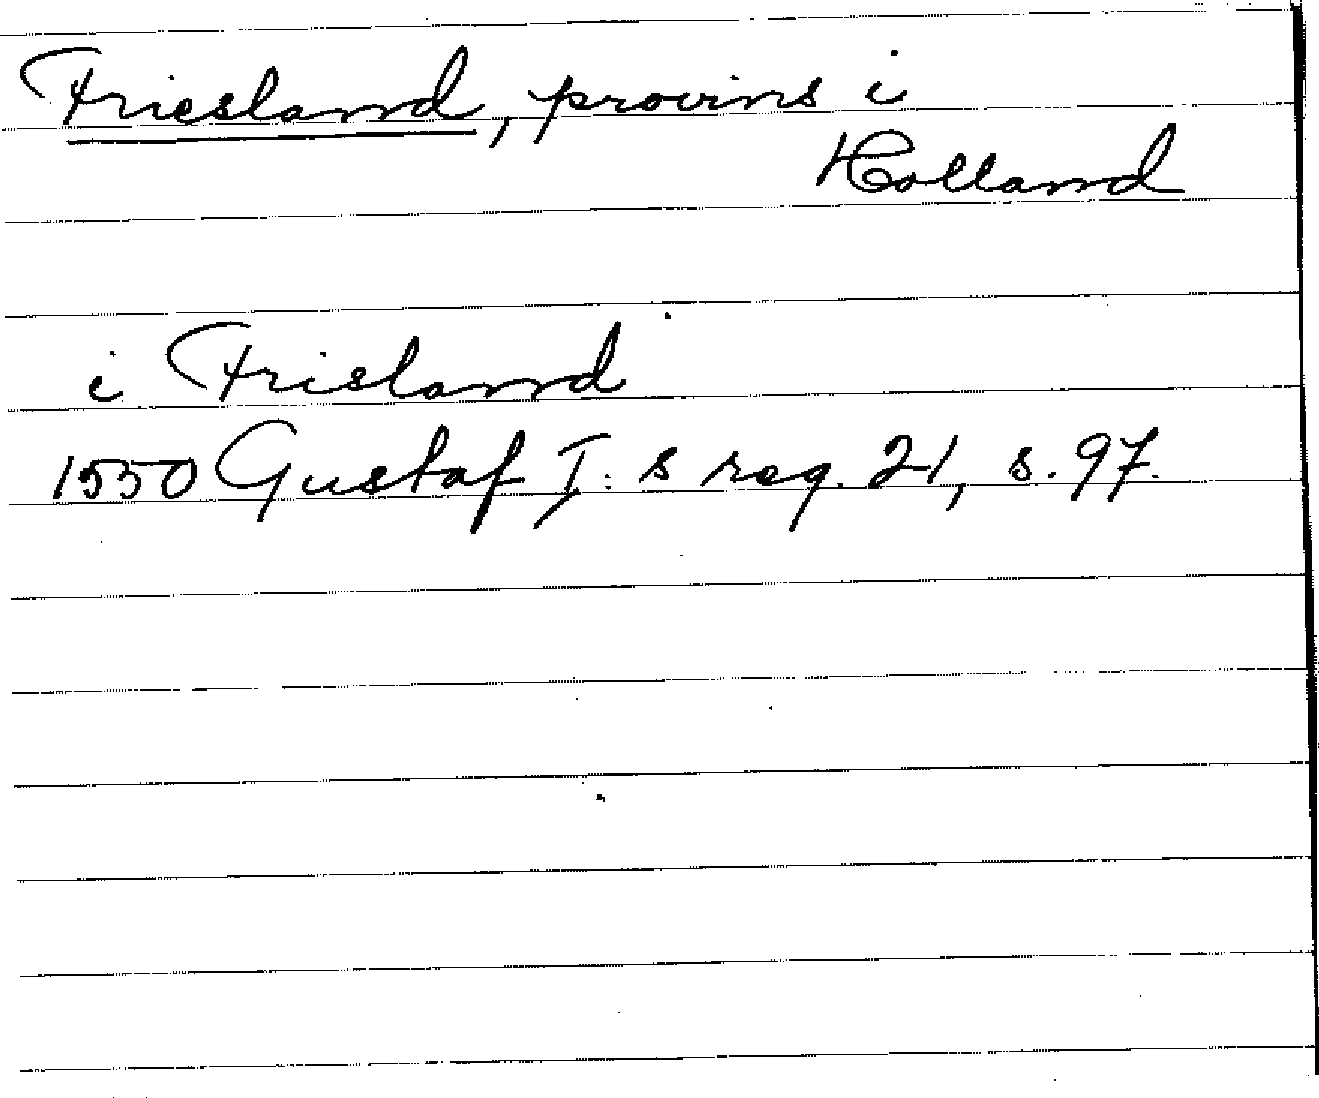 Friesland, provins i
Holland
i Frisland
1550 Gustaf I:s reg. 21, s. 97.